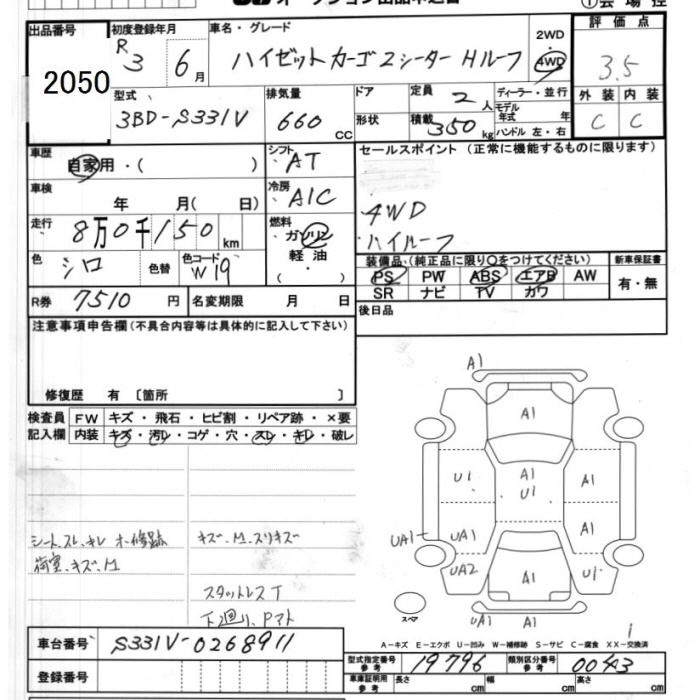 出品番号 初度登録年月 車名・グレード 2WD 評価点
2050 R3 6月 ハイゼットカーゴ2シーターHルーフ 4WD 3.5
型式 排気量 ドア 定員 2人 ディーラー・並行 外装 内装
3BD-S331V 660cc 形状 積載 350kg モデル年式 年 ハンドル 左・右 C C
車歴 自家用・( ) シフト AT セールスポイント (正常に機能するものに限ります)
車検 年 月( 日) 冷房 A/C 4WD
走行 8万0千150km 燃料 ガソリン ハイルーフ
色 シロ 色替 色コード W19 軽油 ( ・ )
装備品・(純正品に限り○をつけてください) 新車保証書
PS PW ABS エアB AW 有・無
SR ナビ TV カワ
R券 7510円 名変期限 月 日 後日品
注意事項申告欄(不具合内容等は具体的に記入して下さい)
修復歴 有 〔箇所 〕
検査員 FW キズ・飛石・ヒビ割・リペア跡・×要
記入欄 内装 キズ・汚レ・コゲ・穴・スレ・キレ・破レ
A1
A1
U1 A1 A1
U1
UA1 UA1 A1
UA2 A1 U1
UA1 A1
スペア
シートスレ、キレ オ、修跡 キズ、M、スリキズ
荷室、キズ、M
スタットレスT
下廻り、Pマト
A-キズ E-エクボ U-凹み W-補修跡 S-サビ C-腐食 XX-交換済
車台番号 S331V-0268911
型式指定番号 参考 19796 類別区分番号 参考 0043
登録番号 車庫証明用 参考 長さ cm 幅 cm 高さ cm